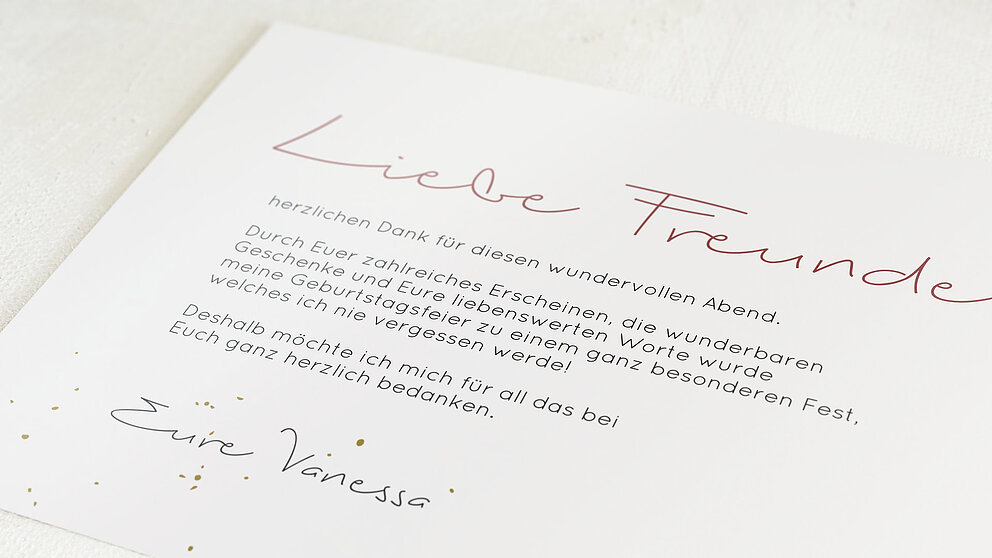 Liebe Freunde
herzlichen Dank für diesen wundervollen Abend.
Durch Euer zahlreiches Erscheinen, die wunderbaren
Geschenke und Eure liebenswerten Worte wurde
meine Geburtstagsfeier zu einem ganz besonderen Fest,
welches ich nie vergessen werde!
Deshalb möchte ich mich für all das bei
Euch ganz herzlich bedanken.
Eure Vanessa